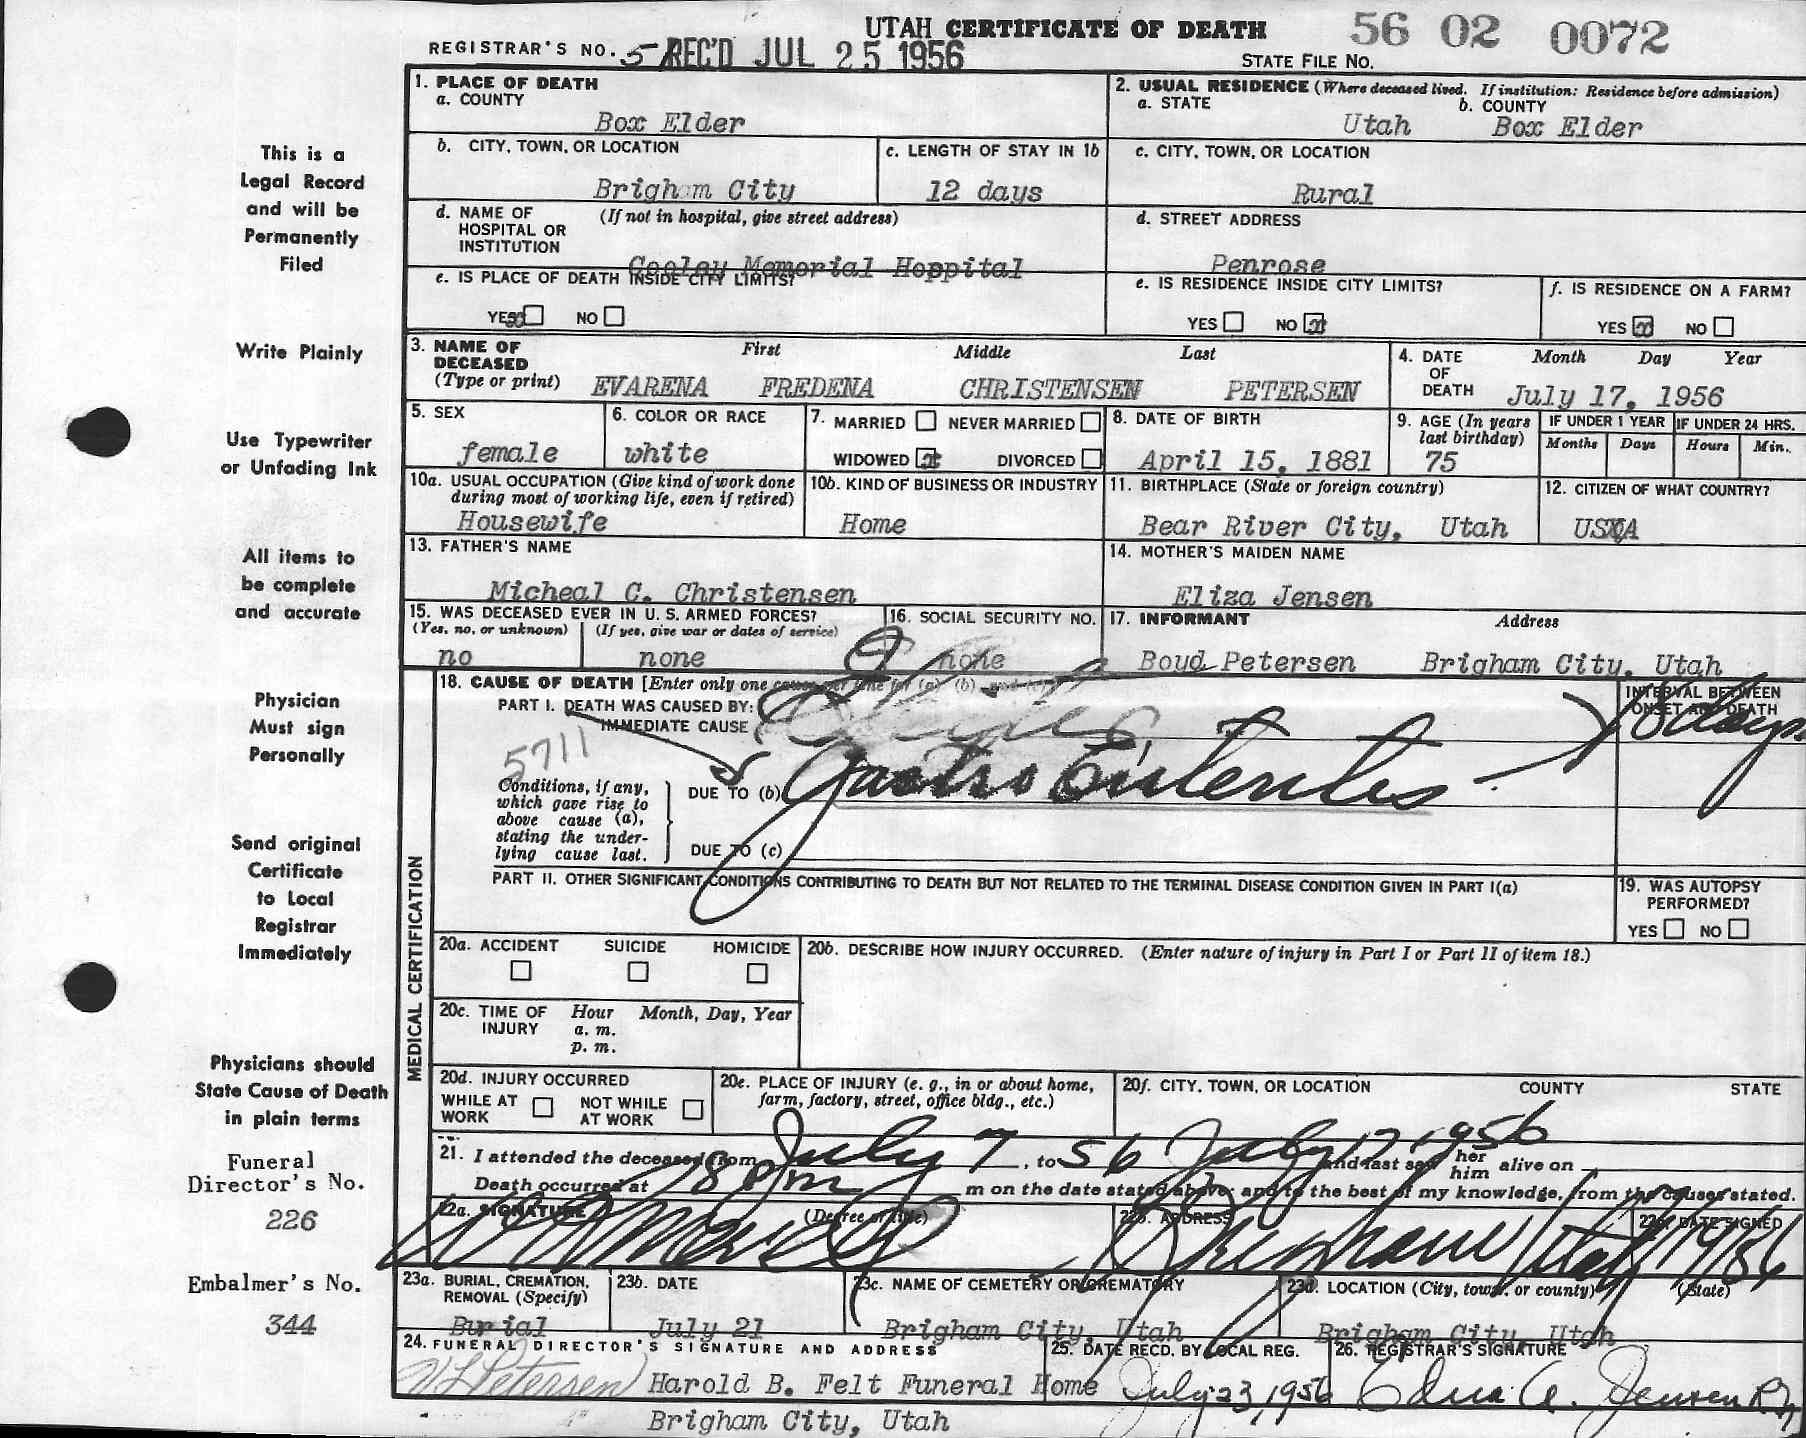 UTAH CERTIFICATE OF DEATH 56 02 0072
REGISTRAR'S NO. 5 REC'D JUL 25 1956 STATE FILE NO.
1. PLACE OF DEATH
a. COUNTY
Box Elder
2. USUAL RESIDENCE (Where deceased lived. If institution: Residence before admission)
a. STATE b. COUNTY
Utah Box Elder
b. CITY, TOWN, OR LOCATION
Brigham City
c. LENGTH OF STAY IN 1b
12 days
c. CITY, TOWN, OR LOCATION
Rural
d. NAME OF HOSPITAL OR INSTITUTION (If not in hospital, give street address)
Cooley Memorial Hoppital
d. STREET ADDRESS
Penrose
e. IS PLACE OF DEATH INSIDE CITY LIMITS?
YES NO
e. IS RESIDENCE INSIDE CITY LIMITS?
YES NO x
f. IS RESIDENCE ON A FARM?
YES x NO
3. NAME OF DECEASED (Type or print) First Middle Last
EVARENA FREDENA CHRISTENSEN PETERSEN
4. DATE OF DEATH Month Day Year
July 17, 1956
5. SEX
female
6. COLOR OR RACE
white
7. MARRIED NEVER MARRIED
WIDOWED x DIVORCED
8. DATE OF BIRTH
April 15, 1881
9. AGE (In years last birthday)
75
IF UNDER 1 YEAR IF UNDER 24 HRS.
Months Days Hours Min.
10a. USUAL OCCUPATION (Give kind of work done during most of working life, even if retired)
Housewife
10b. KIND OF BUSINESS OR INDUSTRY
Home
11. BIRTHPLACE (State or foreign country)
Bear River City, Utah
12. CITIZEN OF WHAT COUNTRY?
USA
13. FATHER'S NAME
Micheal C. Christensen
14. MOTHER'S MAIDEN NAME
Eliza Jensen
15. WAS DECEASED EVER IN U. S. ARMED FORCES?
(Yes, no, or unknown) (If yes, give war or dates of service)
no none
16. SOCIAL SECURITY NO.
none
17. INFORMANT Address
Boyd Petersen Brigham City, Utah
MEDICAL CERTIFICATION
18. CAUSE OF DEATH [Enter only one cause per line for (a) (b) and (c)]
INTERVAL BETWEEN ONSET AND DEATH
PART I. DEATH WAS CAUSED BY:
IMMEDIATE CAUSE
10 days
5711
Conditions, if any, which gave rise to above cause (a), stating the underlying cause last.
DUE TO (b) Gastro Enteritis
DUE TO (c)
PART II. OTHER SIGNIFICANT CONDITIONS CONTRIBUTING TO DEATH BUT NOT RELATED TO THE TERMINAL DISEASE CONDITION GIVEN IN PART I(a)
19. WAS AUTOPSY PERFORMED?
YES NO
20a. ACCIDENT SUICIDE HOMICIDE
20b. DESCRIBE HOW INJURY OCCURRED. (Enter nature of injury in Part I or Part II of item 18.)
20c. TIME OF INJURY Hour Month, Day, Year
a. m.
p. m.
20d. INJURY OCCURRED
WHILE AT WORK NOT WHILE AT WORK
20e. PLACE OF INJURY (e. g., in or about home, farm, factory, street, office bldg., etc.)
20f. CITY, TOWN, OR LOCATION COUNTY STATE
21. I attended the deceased from July 7, to 56 July 17 1956 and last saw her him alive on
Death occurred at 8 pm m on the date stated above; and to the best of my knowledge, from the causes stated.
22a. SIGNATURE (Degree or title)
22b. ADDRESS
Brigham Utah
22c. DATE SIGNED
23a. BURIAL, CREMATION, REMOVAL (Specify)
Burial
23b. DATE
July 21
23c. NAME OF CEMETERY OR CREMATORY
Brigham City, Utah
23d. LOCATION (City, town, or county) (State)
Brigham City, Utah
24. FUNERAL DIRECTOR'S SIGNATURE AND ADDRESS
V L Petersen Harold B. Felt Funeral Home
Brigham City, Utah
25. DATE RECD. BY LOCAL REG.
July 23, 1956
26. REGISTRAR'S SIGNATURE
Edna A. Jensen RN
This is a
Legal Record
and will be
Permanently
Filed
Write Plainly
Use Typewriter
or Unfading Ink
All items to
be complete
and accurate
Physician
Must sign
Personally
Send original
Certificate
to Local
Registrar
Immediately
Physicians should
State Cause of Death
in plain terms
Funeral
Director's No.
226
Embalmer's No.
344